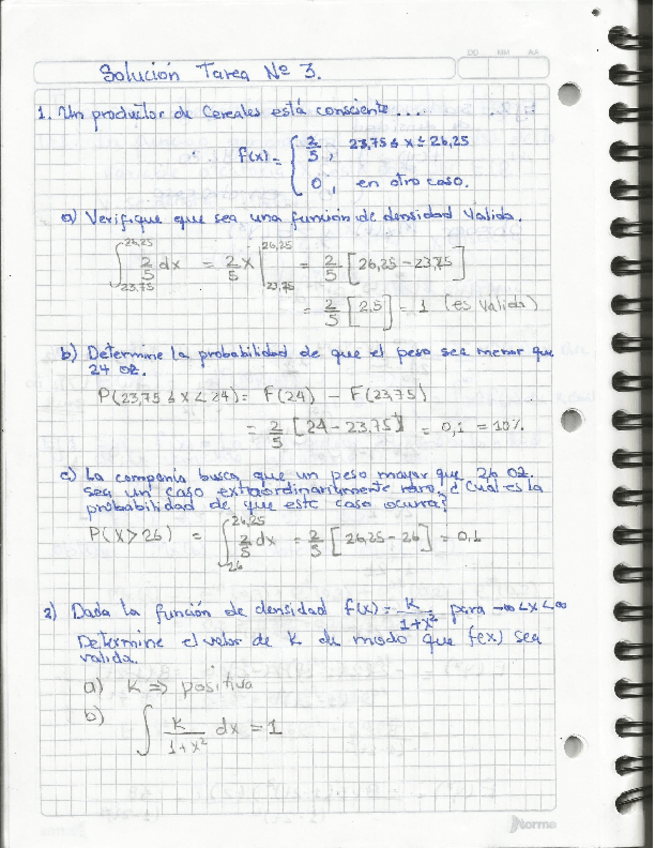 DD MM AA
Solución Tarea Nº 3.
1. Un productor de Cereales está consciente ....
f(x) = { 2/5 ; 23,75 ≤ x ≤ 26,25
0 ; en otro caso.
a) Verifique que sea una función de densidad valida.
∫_{23,75}^{26,25} 2/5 dx = 2/5 x |_{23,75}^{26,25} = 2/5 [26,25 - 23,75]
= 2/5 [2,5] = 1 (es valida)
b) Determine la probabilidad de que el peso sea menor que
24 oz.
P(23,75 ≤ x < 24) = F(24) - F(23,75)
= 2/5 [24 - 23,75] = 0,1 = 10%
c) La compañía busca que un peso mayor que 26 oz.
sea un caso extraordinariamente raro, ¿Cual es la
probabilidad de que este caso ocurra?
P(X > 26) = ∫_{26}^{26,25} 2/5 dx = 2/5 [26,25 - 26] = 0,1
2) Dada la función de densidad f(x) = K/(1+x²) para -∞ < x < ∞
Determine el valor de K de modo que f(x) sea
valida.
a) K => positiva
b) ∫ K/(1+x²) dx = 1
Norma